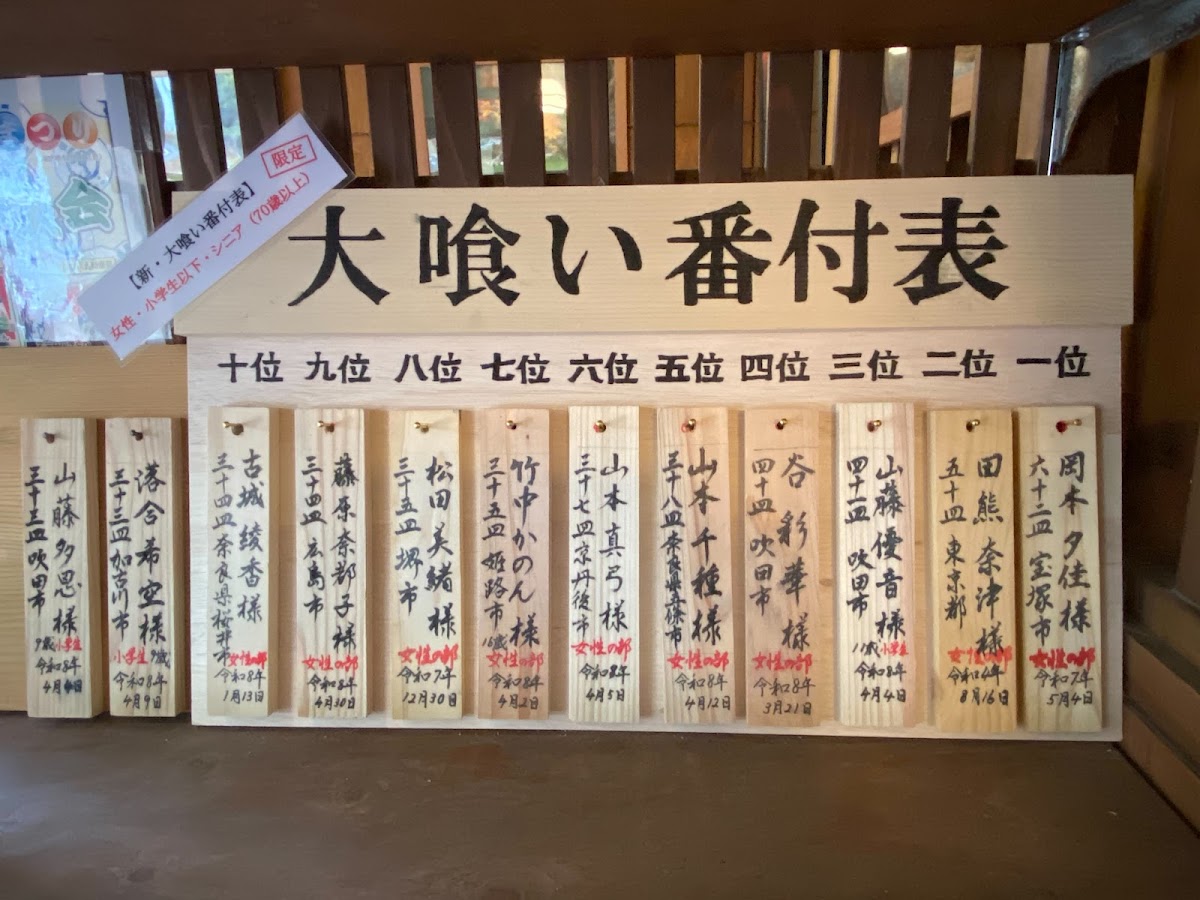 まつり
会
限定
【新・大喰い番付表】
女性・小学生以下・シニア（70歳以上）
大喰い番付表
一位
二位
三位
四位
五位
六位
七位
八位
九位
十位
岡本夕佳様
六十二皿 宝塚市
女性の部
令和7年
5月4日
田熊奈津様
五十四皿 東京都
女性の部
令和6年
8月16日
山藤優音様
四十一皿 吹田市
11歳小学生
令和8年
4月4日
谷彩華様
四十四皿 吹田市
女性の部
令和8年
3月21日
山本千種様
三十八皿 奈良県五條市
女性の部
令和8年
4月12日
山本真弓様
三十七皿 京丹後市
女性の部
令和8年
4月5日
竹中かのん様
三十五皿 姫路市
女性の部
令和8年
4月2日
松田美緒様
三十五皿 堺市
女性の部
令和7年
12月30日
藤原奈都子様
三十四皿 広島市
女性の部
令和8年
4月30日
古城綾香様
三十四皿 奈良県桜井市
女性の部
令和8年
1月13日
落合希空様
三十三皿 加古川市
小学生 9歳
令和8年
4月9日
山藤多恩様
三十三皿 吹田市
9歳小学生
令和8年